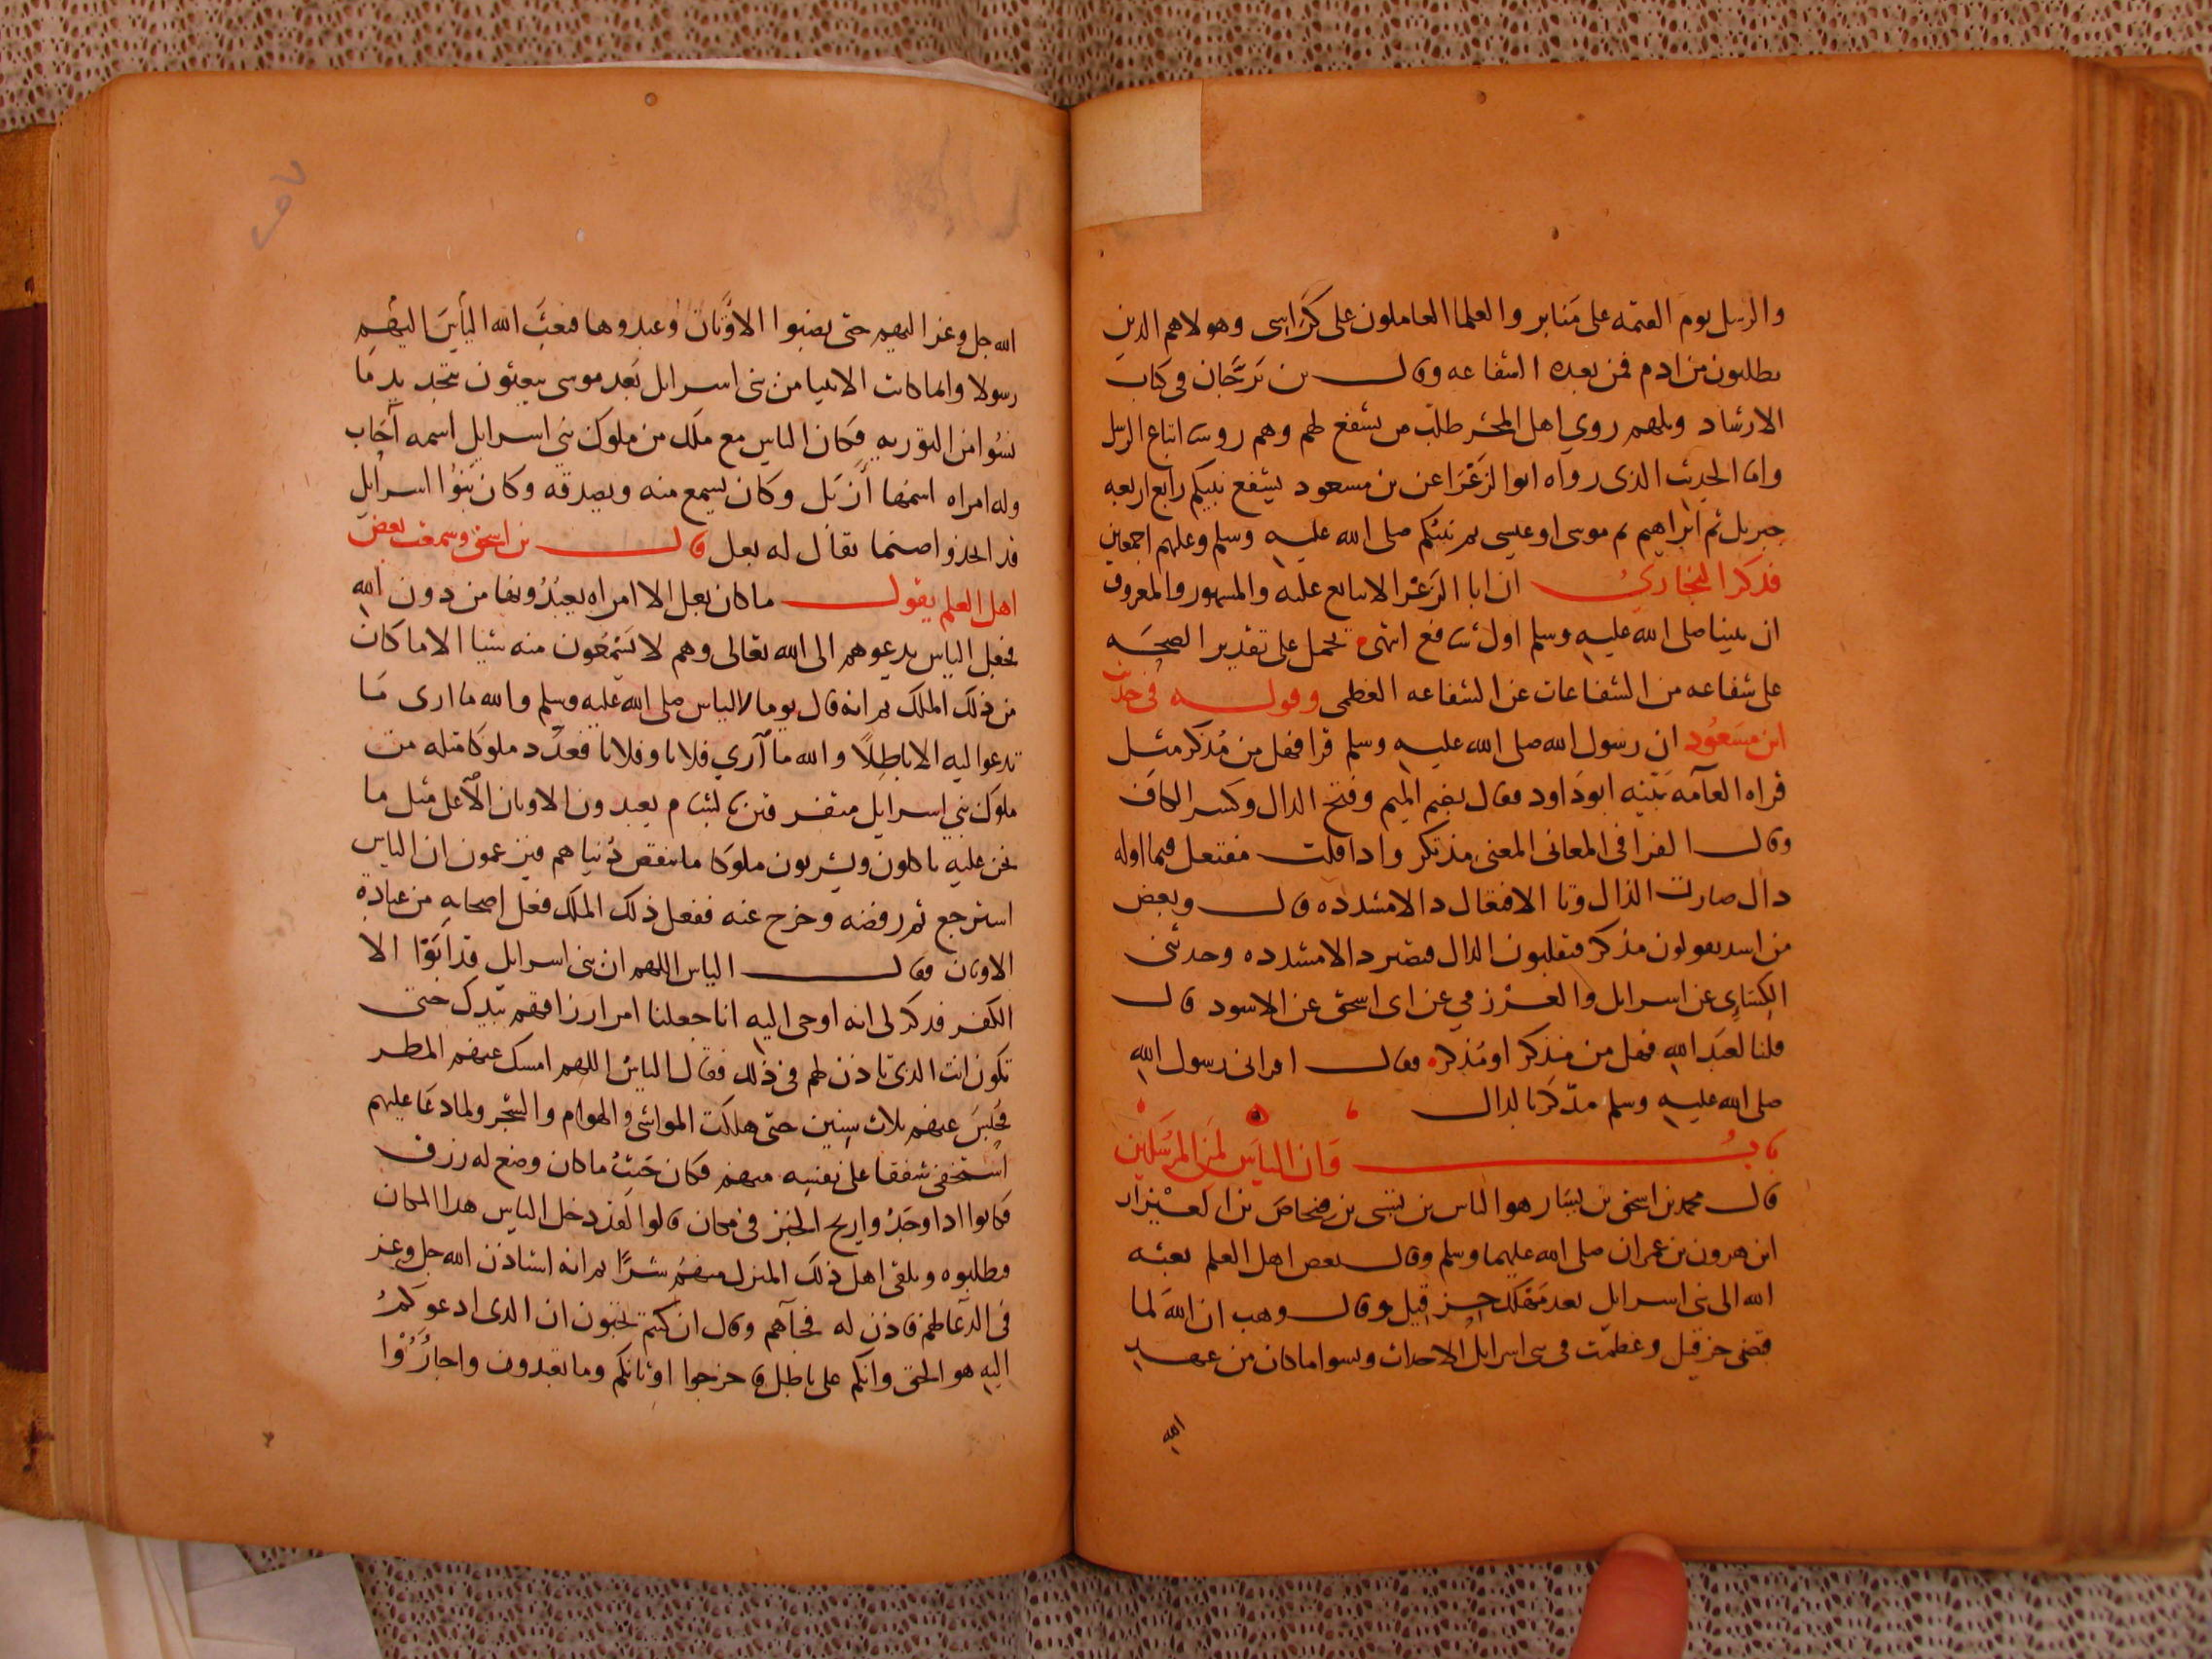 والرسل يوم القيمه على منابر والعلما العاملون على كراسى وهولاهم الذين
يطلبون من ادم فمن بعده الشفاعه وقال بن برجان فى كتاب
الارشاد ويلهم روي اهل المحشر طلب من يشفع لهم وهم روسا اتباع الرسل
واما الحديث الذى رواه ابوالزعرا عن بن مسعود يشفع نبيكم رابع اربعه
جبريل ثم ابراهيم ثم موسى اوعيسى ثم نبيكم صلى الله عليه وسلم وعليهم اجمعين
فذكر البخاري ان ابا الزعرا لا يتابع عليه والمشهور والمعروف
ان نبينا صلى الله عليه وسلم اول شافع انتهى يحمل على تقدير الصحه
على شفاعه من الشفاعات عن الشفاعه العظمى وقوله فى حديث
ابن مسعود ان رسول الله صلى الله عليه وسلم قرا فهل من مذكر مثل
قراه العامه بينه ابوداود فقال بضم الميم وفتح الدال وكسر الكاف
وقال الفرا فى المعانى المعنى مذتكر واذا قلت مفتعل فيما اوله
دال صارت الذال وتا الافتعال دالا مشدده قال وبعض
من اسد يقولون مذكر فيقلبون الدال فتصير ذالا مشدده وحدثنى
الكسايى عن اسرايل والعرزمي عن ابى اسحق عن الاسود قال
قلنا لعبد الله فهل من مذكر او مدكر فقال اقرانى رسول الله
صلى الله عليه وسلم مدكر بالدال
باب وان الياس لمن المرسلين
قال محمد بن اسحق بن يسار هو الياس بن تسبى بن فنحاص بن العيزار
ابن هرون بن عمران صلى الله عليهما وسلم وقال بعض اهل العلم بعثه
الله الى بنى اسرايل بعد مهلك حزقيل وقال وهب ان الله لما
قبض حزقيل وعظمت فى بنى اسرايل الاحداث ونسوا ما كان من عهد
الله
الله جل وعز اليهم حتى نصبوا الاوثان وعبدوها فبعث الله الياس اليهم
رسولا وانما كانت الانبيا من بنى اسرايل بعد موسى يبعثون بتجديد ما
نسوا من التوريه فكان الياس مع ملك من ملوك بني اسرايل اسمه احاب
وله امراه اسمها ازبل وكان يسمع منه ويصدقه وكان بنوا اسرايل
قد اتخذوا صنما يقال له بعل قال بن اسحق وسمعت بعض
اهل العلم يقول ما كان بعل الا امراه يعبدونها من دون الله
فجعل الياس يدعوهم الى الله تعالى وهم لا يسمعون منه شيا الا ما كان
من ذلك الملك ثم انه قال يوما لالياس صلى الله عليه وسلم والله ما ارى ما
تدعوا ليه الا باطلا والله ما اري فلانا وفلانا فعدد ملوكا مثله من
ملوك بني اسرايل متفرقين بالشام يعبدون الاوثان الا على مثل ما
نحن عليه ياكلون ويشربون ملوكا ما ينقص دنياهم فيزعمون ان الياس
استرجع ثم رفضه وخرج عنه ففعل ذلك الملك فعل اصحابه من عبادة
الاوثان وقال الياس اللهم ان بنى اسرايل قد ابوا الا
الكفر فذكر لى انه اوحى اليه انا جعلنا امر ارزاقهم بيدك حتى
تكون انت الذى تاذن لهم فى ذلك فقال الياس اللهم امسك عنهم المطر
فحبس عنهم ثلاث سنين حتى هلكت المواشى والهوام والشجر ولما دعا عليهم
استخفى شفقا على نفسه منهم فكان حيث ما كان وضع له رزق
فكانوا اذا وجدوا ريح الخبز فى مكان قالوا لقد دخل الياس هذا المكان
فطلبوه ويلقى اهل ذلك المنزل منهم شرا ثم انه استاذن الله جل وعز
فى الدعا لهم فاذن له فجاهم وقال ان كنتم تحبون ان الذى ادعوكم
اليه هو الحق وانكم على باطل فاخرجوا اوثانكم وما تعبدون واجاروا